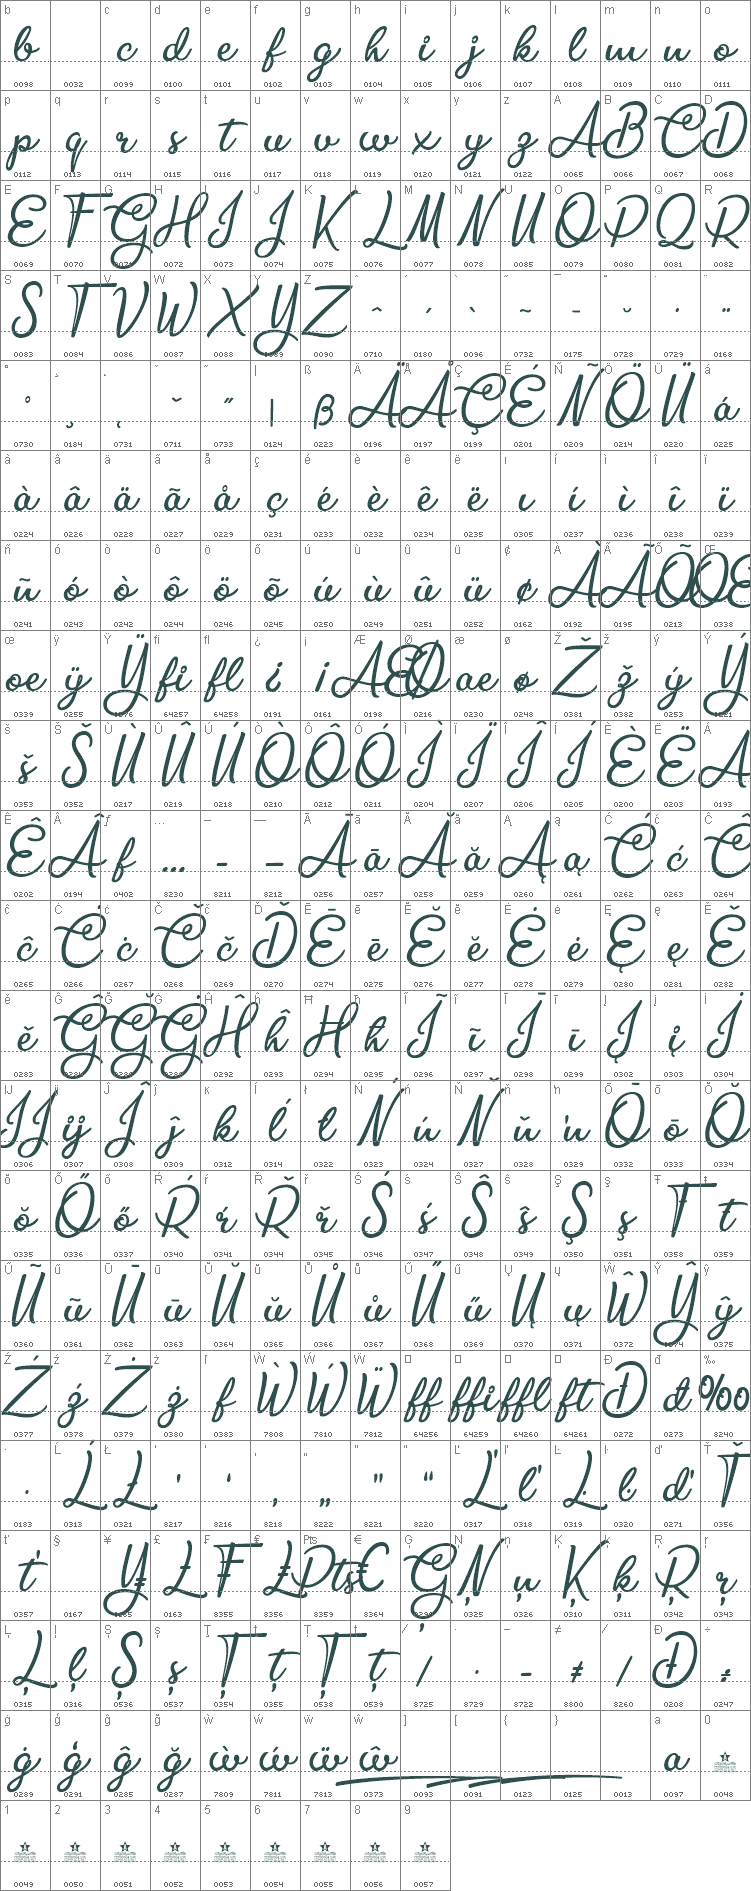 b c d e f g h i j k l m n o
0098 0032 0099 0100 0101 0102 0103 0104 0105 0106 0107 0108 0109 0110 0111
p q r s t u v w x y z A B C D
0112 0113 0114 0115 0116 0117 0118 0119 0120 0121 0122 0065 0066 0067 0068
E F G H I J K L M N U O P Q R
0069 0070 0071 0072 0073 0074 0075 0076 0077 0078 0085 0079 0080 0081 0082
S T V W X Y Z ˆ ´ ` ˜ ¯ ˘ ˙ ¨
0083 0084 0086 0087 0088 0089 0090 0710 0180 0096 0732 0175 0728 0729 0168
˚ ¸ ˛ ˇ ˝ | ß Ä Å Ç É Ñ Ö Ü á
0730 0184 0731 0711 0733 0124 0223 0196 0197 0199 0201 0209 0214 0220 0225
à â ä ã å ç é è ê ë ı í ì î ï
0224 0226 0228 0227 0229 0231 0233 0232 0234 0235 0305 0237 0236 0238 0239
ñ ó ò ô ö õ ú ù û ü ¢ À Ã Õ Œ
0241 0243 0242 0244 0246 0250 0249 0251 0252 0162 0192 0195 0213 0338
œ ÿ Ÿ ﬁ ﬂ ¿ ¡ Æ Ø æ ø Ž ž ý Ý
0339 0255 0376 64257 64258 0191 0161 0198 0216 0230 0248 0381 0382 0253 0221
š Š Ù Û Ú Ò Ô Ó Ì Ï Î Í È Ë Á
0353 0352 0217 0219 0218 0210 0212 0211 0204 0207 0206 0205 0200 0203 0193
Ê Â ƒ … – — Ā ā Ă ă Ą ą Ć ć Ĉ
0202 0194 0402 8230 8211 8212 0256 0257 0258 0259 0260 0261 0262 0263 0264
ĉ Ċ ċ Č č Ď Ē ē Ĕ ĕ Ė ė Ę ę Ě
0265 0266 0267 0268 0269 0270 0274 0275 0276 0277 0278 0279 0280 0281 0282
ě Ĝ Ğ Ġ Ĥ ĥ Ħ ħ Ĩ ĩ Ī ī Į į İ
0283 0284 0286 0288 0292 0293 0294 0295 0296 0297 0298 0299 0302 0303 0304
Ĳ ĳ Ĵ ĵ ĸ ĺ ł Ń ń Ň ň ŉ Ō ō Ŏ
0306 0307 0308 0309 0312 0314 0322 0323 0324 0327 0328 0329 0332 0333 0334
ŏ Ő ő Ŕ ŕ Ř ř Ś ś Ŝ ŝ Ş ş Ŧ ŧ
0335 0336 0337 0340 0341 0344 0345 0346 0347 0348 0349 0350 0351 0358 0359
Ũ ũ Ū ū Ŭ ŭ Ů ů Ű ű Ų ų Ŵ Ŷ ŷ
0360 0361 0362 0363 0364 0365 0366 0367 0368 0369 0370 0371 0372 0374 0375
Ź ź Ż ż ſ Ẁ Ẃ Ẅ ff ffi ffl ft Đ đ ‰
0377 0378 0379 0380 0383 7808 7810 7812 64256 64259 64260 64261 0272 0273 8240
· Ĺ Ł ’ ‘ ‚ „ ” “ Ľ ľ Ŀ ŀ ď Ť
0183 0313 0321 8217 8216 8218 8222 8221 8220 0317 0318 0319 0320 0271 0356
ť § ¥ £ ₣ ₤ ₧ € Ģ Ņ ņ Ķ ķ Ŗ ŗ
0357 0167 0165 0163 8355 8356 8359 8364 0290 0325 0326 0310 0311 0342 0343
Ļ ļ Ș ș Ţ ţ Ț ț ∕ ∙ − ≠ ⁄ Ð ÷
0315 0316 0536 0537 0354 0355 0538 0539 8725 8729 8722 8800 8260 0208 0247
ġ ģ ĝ ğ ẁ ẃ ẅ ŵ ] [ { } a 0
0289 0291 0285 0287 7809 7811 7813 0373 0093 0091 0123 0125 0013 0097 0048
1 2 3 4 5 6 7 8 9
0049 0050 0051 0052 0053 0054 0055 0056 0057